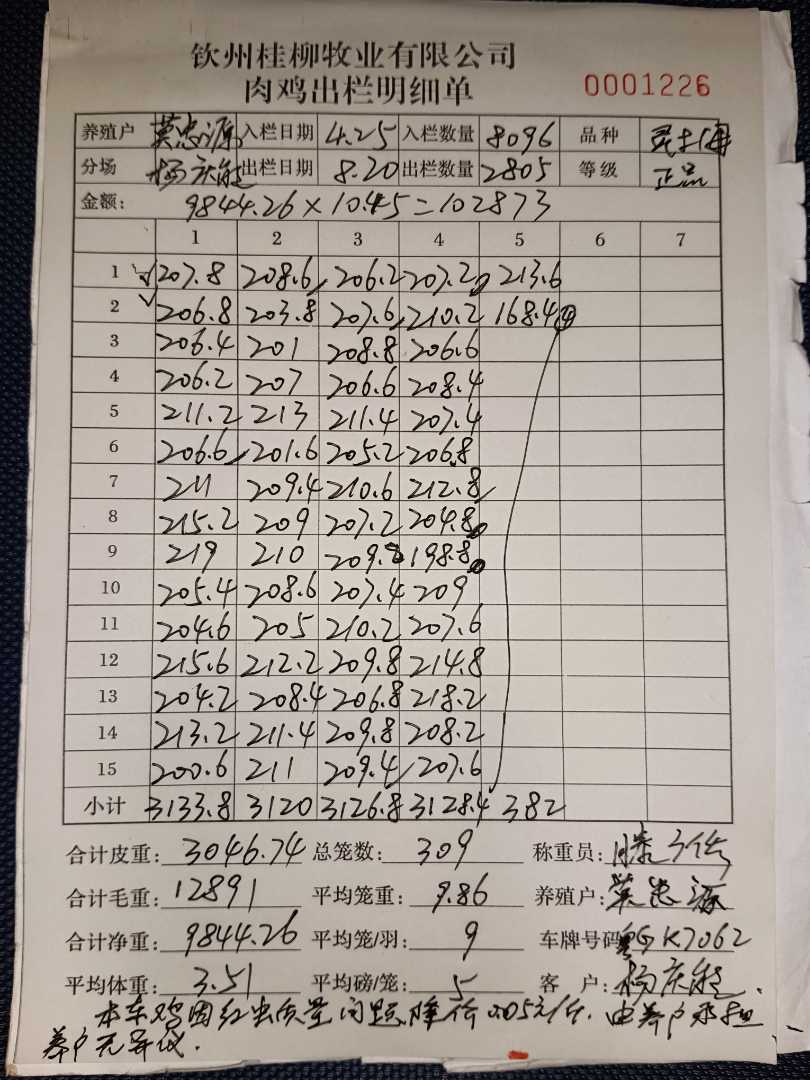 钦州桂柳牧业有限公司
肉鸡出栏明细单 0001226
养殖户 莫忠源 入栏日期 4.25 入栏数量 8096 品种
分场 杨庆能 出栏日期 8.20 出栏数量 2805 等级 正品
金额: 9844.26×10.45=102873
1 2 3 4 5 6 7
1 207.8 208.6 206.2 207.2 213.6
2 206.8 203.8 207.6 210.2 168.4 ④
3 206.4 201 208.8 206.6
4 206.2 207 206.6 208.4
5 211.2 213 211.4 207.4
6 206.6 201.6 205.2 206.8
7 211 209.4 210.6 212.8
8 215.2 209 207.2 204.8
9 219 210 209.8 198.8
10 205.4 208.6 207.4 209
11 204.6 205 210.2 207.6
12 215.6 212.2 209.8 214.8
13 204.2 208.4 206.8 218.2
14 213.2 211.4 209.8 208.2
15 200.6 211 209.4 207.6
小计 3133.8 3120 3126.8 3128.4 382
合计皮重: 3046.74 总笼数: 309 称重员:
合计毛重: 12891 平均笼重: 9.86 养殖户: 莫忠源
合计净重: 9844.26 平均笼/羽: 9 车牌号码 K7062
平均体重: 3.51 平均磅/笼: 5 客户: 杨庆能.
本车鸡因红虫质量问题降价0.05元/斤. 由养户承担
养户无异议.